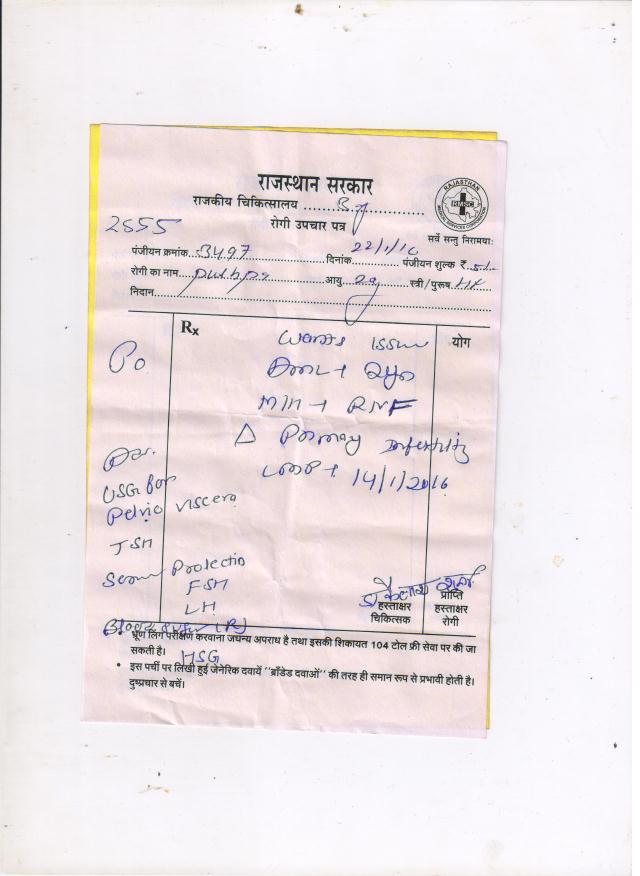 राजस्थान सरकार
राजकीय चिकित्सालय ..................
रोगी उपचार पत्र
RAJASTHAN
RMSC
MEDICAL SERVICES CORPORATION
सर्वे सन्तु निरामयाः
2555
पंजीयन क्रमांक 3497 दिनांक 22/1/16 पंजीयन शुल्क ₹
रोगी का नाम आयु स्त्री/पुरूष
निदान
Rx
योग
Po
wants issue
M/H + RNF
Δ Primary Infertility
LMP + 14/1/2016
Adv.
USG for
Pelvic viscera
TSH
Serum Prolectin
FSH
LH
Blood sugar (R)
HSG
हस्ताक्षर
चिकित्सक
प्राप्ति
हस्ताक्षर
रोगी
भ्रूण लिंग परीक्षण करवाना जघन्य अपराध है तथा इसकी शिकायत 104 टोल फ्री सेवा पर की जा
सकती है।
• इस पर्ची पर लिखी हुई जेनेरिक दवायें "ब्राँडेड दवाओं" की तरह ही समान रूप से प्रभावी होती है।
दुष्प्रचार से बचें।